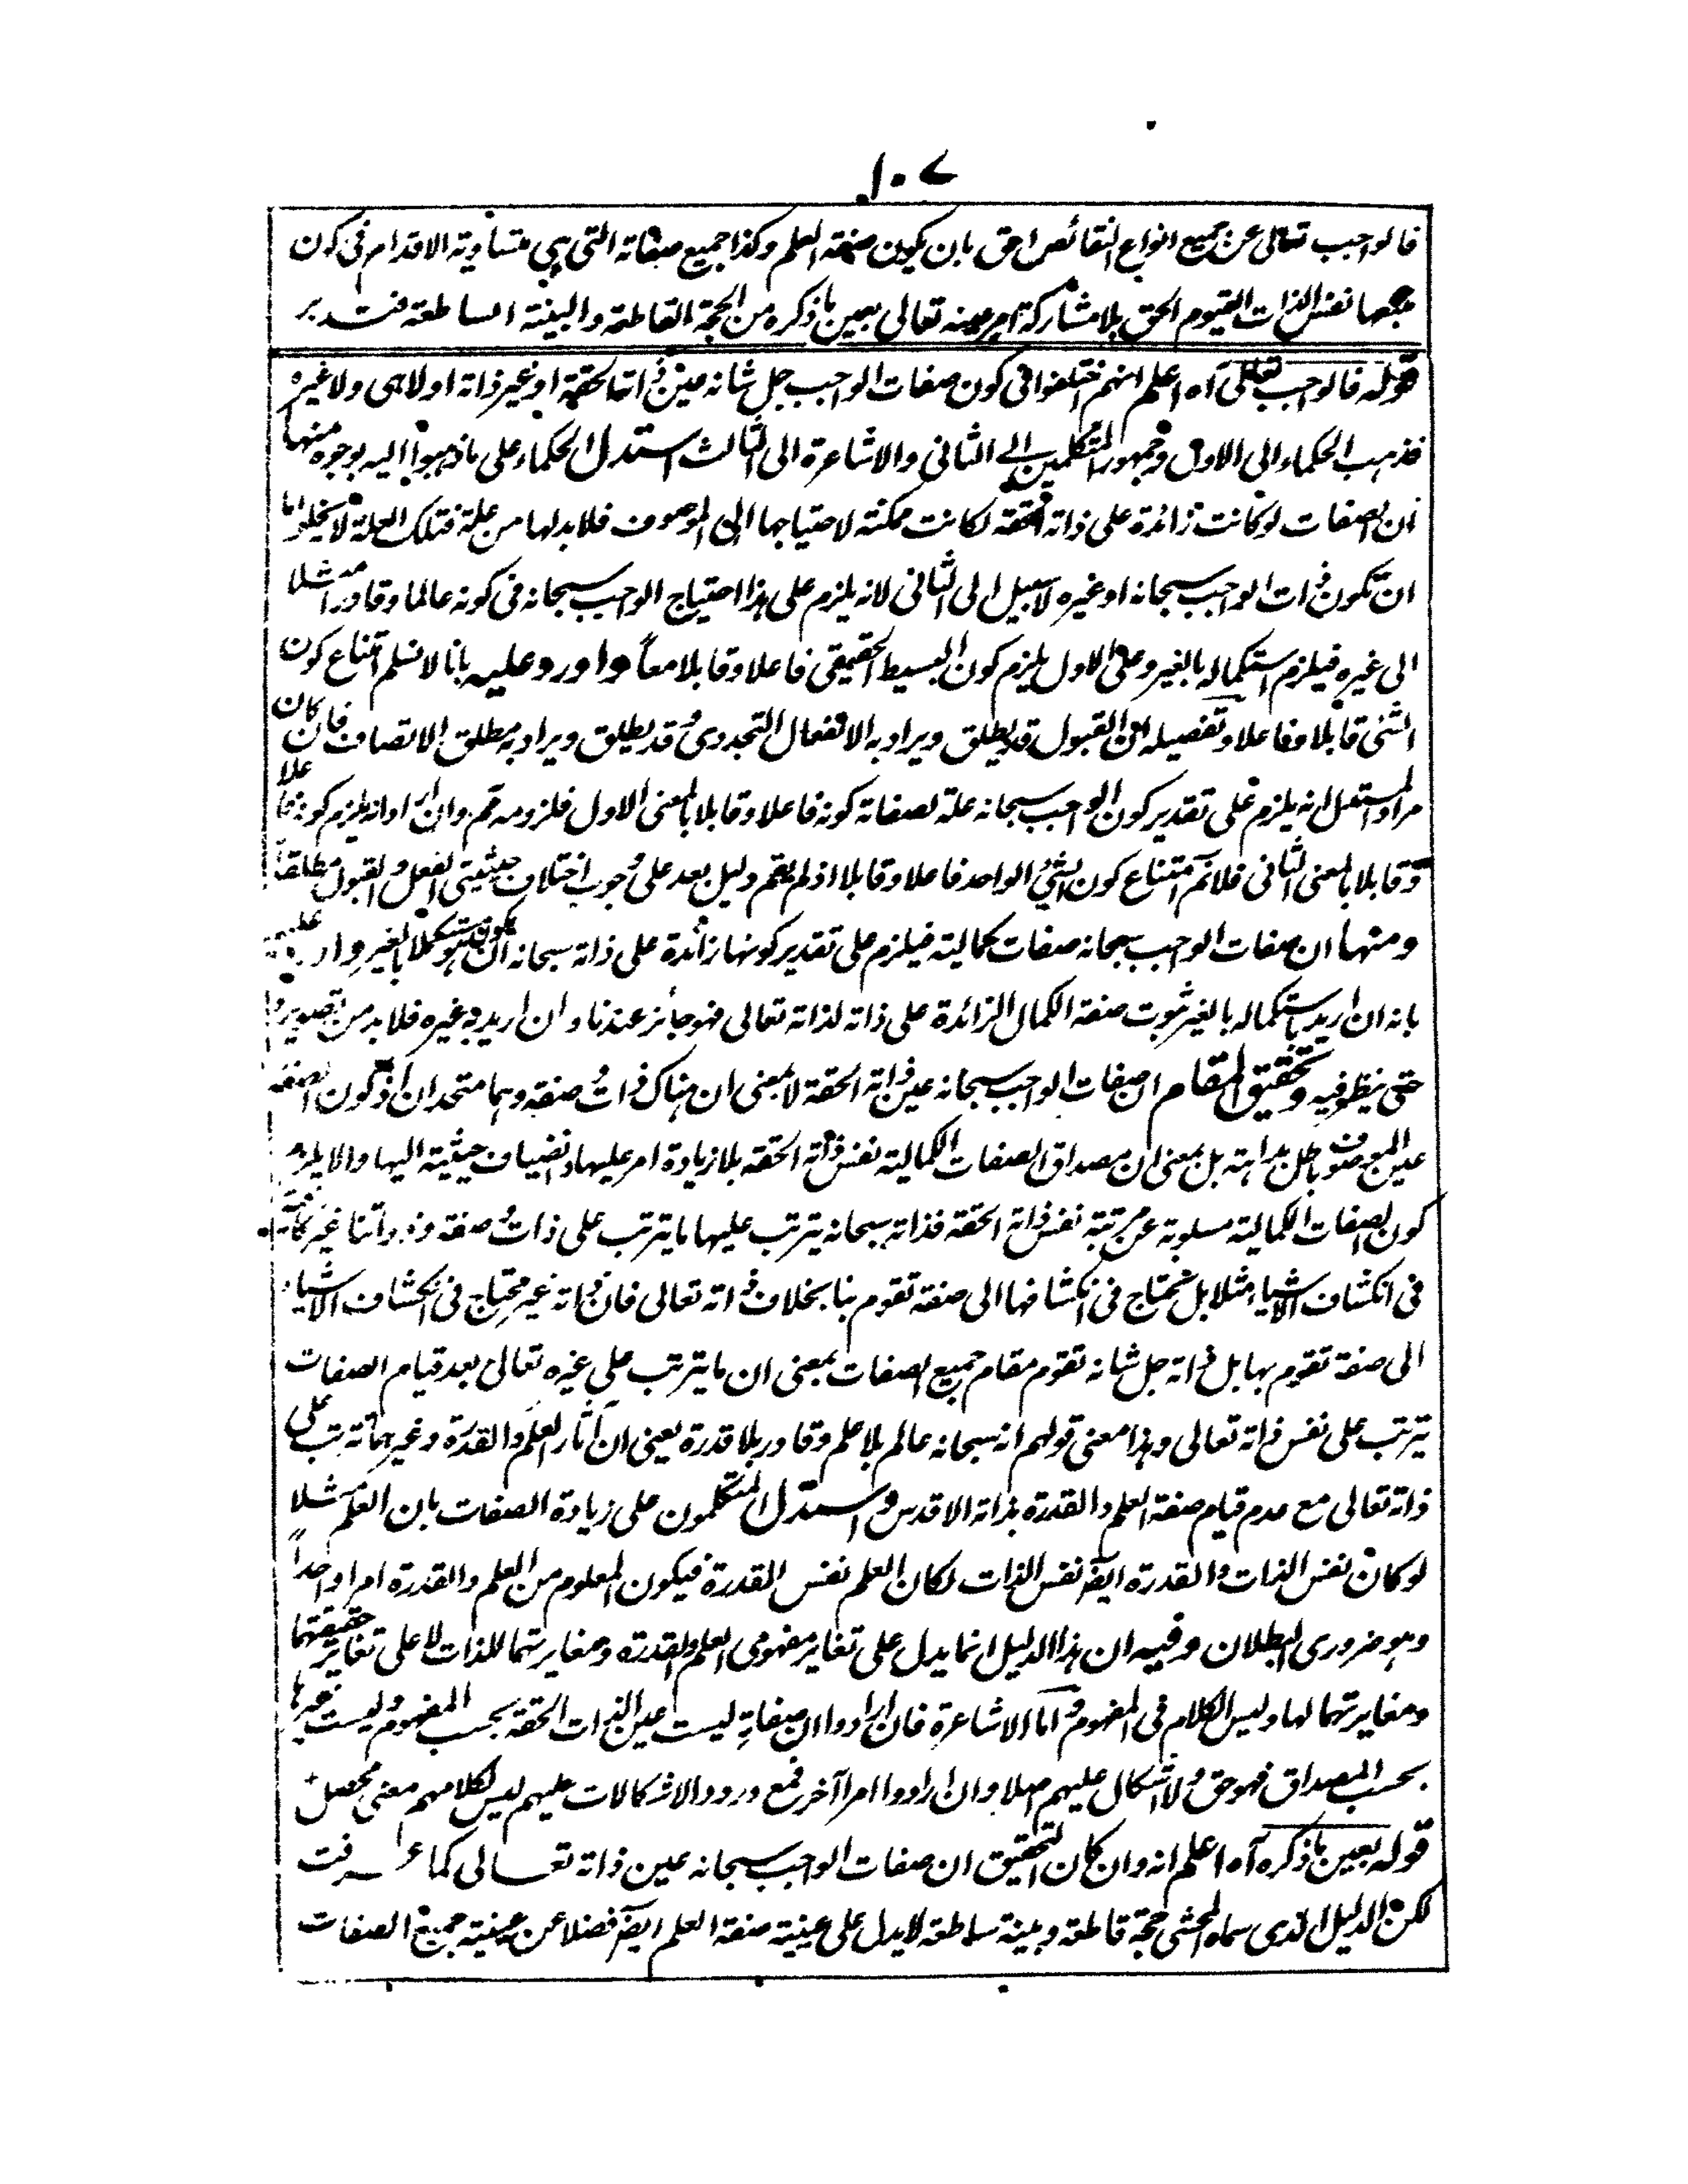 ١٠٧
فالواجب تعالى عن جميع انواع النقائص احق بان يكون صفة العلم وكذا جميع صفاته التى هى متساوية الاقدام فى كون
نفس الذات القيوم الحق بلا مشاركة امر مبينه تعالى بعين ما ذكره من الحجة القاطعة والبينة الساطعة فتدبر
قوله فالواجب تعالى آه اعلم انهم اختلفوا فى كون صفات الواجب جل شانه عين ذاته الحقة او غير ذاته او لا هى ولا غيره
فذهب الحكماء الى الاول وجمهور المتكلمين الى الثانى والاشاعرة الى الثالث استدل الحكماء على ما ذهبوا اليه بوجوه منها
ان الصفات لو كانت زائدة على ذاته الحقة لكانت ممكنة لاحتياجها الى الموصوف فلا بد لها من علة فتلك العلة لا يخلو اما
ان تكون ذات الواجب سبحانه او غيره لا سبيل الى الثانى لانه يلزم على هذا احتياج الواجب سبحانه فى كونه عالما وقادرا مثلا
الى غيره فيلزم استكماله بالغير وعلى الاول يلزم كون البسيط الحقيقى فاعلا وقابلا معاً واورد عليه بانا لا نسلم امتناع كون
الشئ قابلا وفاعلا وتفصيله ان القبول قد يطلق ويراد به الانفعال التجددى وقد يطلق ويراد به مطلق الاتصاف فان كان
مراد المستدل انه يلزم على تقدير كون الواجب سبحانه علة لصفاته كونه فاعلا وقابلا بالمعنى الاول فلزومه مم وان اراد انه يلزم كونه فاعلا
وقابلا بالمعنى الثانى فلا نم امتناع كون الشئ الواحد فاعلا وقابلا اذ لم يقم دليل بعد على وجوب اختلاف حيثيتى الفعل والقبول مطلقاً
ومنها ان صفات الواجب سبحانه صفات كمالية فيلزم على تقدير كونها زائدة على ذاته سبحانه ان يكون مستكملا بالغير واورد عليه
بانه ان اريد باستكماله بالغير ثبوت صفة الكمال الزائدة على ذاته لذاته تعالى فهو جائز عندنا وان اريد به غيره فلا بد من تصويره
حتى ينظر فيه وتحقيق المقام ان صفات الواجب سبحانه عين ذاته الحقة لا بمعنى ان هناك ذات وصفة وهما متحدان اذ كون الصفة
عين الموصوف باطل بداهته بل بمعنى ان مصداق الصفات الكمالية نفس ذاته الحقة بلا زيادة امر عليها وانضياف حيثية اليها والا يلزم
كون الصفات الكمالية مسلوبة عن مرتبة نفس ذاته الحقة فذاته سبحانه يترتب عليها ما يترتب على ذات وصفة وذواتنا غير كافية
فى انكشاف الاشياء مثلا بل تحتاج فى انكشافها الى صفة تقوم بنا بخلاف ذاته تعالى فان ذاته غير محتاج فى انكشاف الاشياء
الى صفة تقوم بها بل ذاته جل شانه تقوم مقام جميع الصفات بمعنى ان ما يترتب على غيره تعالى بعد قيام الصفات
يترتب على نفس ذاته تعالى وهذا معنى قولهم انه سبحانه عالم بلا علم وقادر بلا قدرة يعنى ان آثار العلم والقدرة وغيرهما تترتب على
ذاته تعالى مع عدم قيام صفة العلم والقدرة بذاته الاقدس واستدل المتكلمون على زيادة الصفات بان العلم مثلا
لو كان نفس الذات والقدرة ايضا نفس الذات لكان العلم نفس القدرة فيكون المعلوم من العلم والقدرة امرا واحداً
وهو ضرورى البطلان وفيه ان هذا الدليل انما يدل على تغاير مفهومى العلم والقدرة ومغايرتهما للذات لا على تغاير حقيقتهما
ومغايرتهما لها وليس الكلام فى المفهوم واما الاشاعرة فان ارادوا ان صفاته ليست عين الذات الحقة بحسب المفهوم وليست غيرها
بحسب المصداق فهو حق ولا اشكال عليهم اصلا وان ارادوا امرا آخر فمع ورود الاشكالات عليهم ليس لكلامهم معنى محصل
قوله بعين ما ذكره آه اعلم انه وان كان التحقيق ان صفات الواجب سبحانه عين ذاته تعالى كما عرفت
لكن الدليل الذى سماه المحشى حجة قاطعة وبينة ساطعة لا يدل على عينية صفة العلم ايضا فضلا عن عينية جميع الصفات